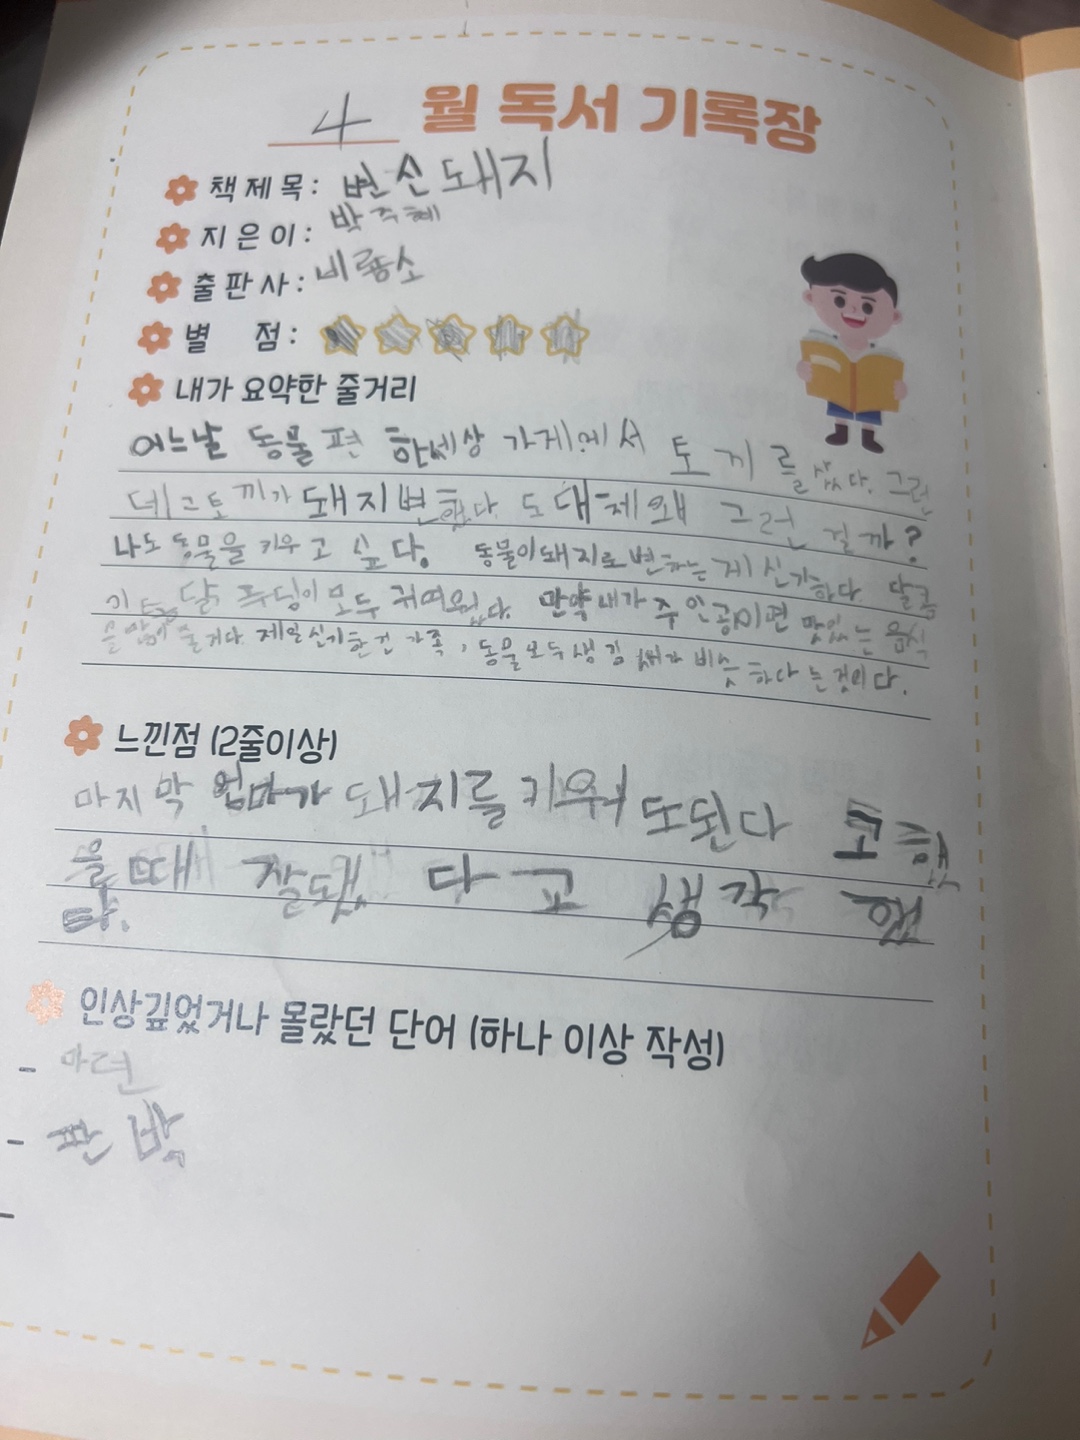 4 월 독서 기록장
책 제 목 : 변신 돼지
지 은 이 : 박주혜
출 판 사 : 비룡소
별 점 :
내가 요약한 줄거리
어느날 동물 편 한세상 가게에서 토끼를 샀다. 그런
데 그 토끼가 돼지 변했다 도대체 왜 그런 걸까?
나도 동물을 키우고 싶다. 동물이 돼지로 변하는 게 신기하다. 달콩
이 달 푸딩이 모두 귀여웠다. 만약 내가 주인공이면 맛있는 음식
을 많이 줄거다. 제일 신기한 건 가족, 동물 모두 생김 새가 비슷 하다 는것이다.
느낀점 (2줄이상)
마지막 엄마가 돼지를 키워 또된다 고 했
을때 잘됐 다고 생각 했
다.
인상깊었거나 몰랐던 단어 (하나 이상 작성)
- 마련
- 판박
-